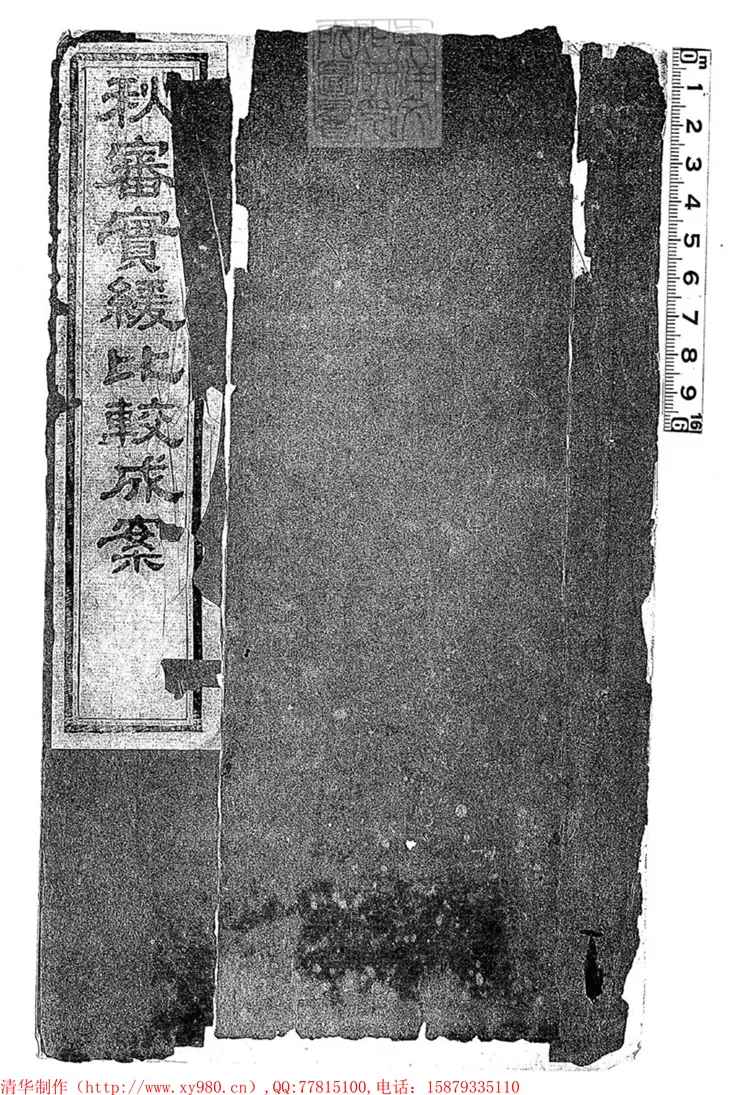 秋審實緩比較成案
0 1 2 3 4 5 6 7 8 9 10
m
清华制作（http://www.xy980.cn）,QQ:77815100,电话：15879335110